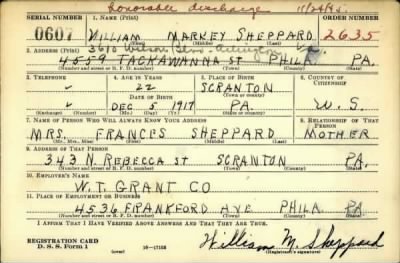 Honorable discharge 11/24/45
SERIAL NUMBER 1. NAME (Print) ORDER NUMBER
0607 WILLIAM MARKEY SHEPPARD 2635
(First) (Middle) (Last)
3618 Wilson Blvd Arlington Va.
2. ADDRESS (Print)
4559 TACKAWANNA ST PHILA PA.
(Number and street or R. F. D. number) (Town) (County) (State)
3. TELEPHONE 4. AGE IN YEARS 5. PLACE OF BIRTH 6. COUNTRY OF CITIZENSHIP
✓ 22 SCRANTON
DATE OF BIRTH (Town or county)
✓ DEC 5 1917 PA. U.S.
(Exchange) (Number) (Mo.) (Day) (Yr.) (State or country)
7. NAME OF PERSON WHO WILL ALWAYS KNOW YOUR ADDRESS 8. RELATIONSHIP OF THAT PERSON
MRS. FRANCES SHEPPARD MOTHER
(Mr., Mrs., Miss) (First) (Middle) (Last)
9. ADDRESS OF THAT PERSON
343 N. REBECCA ST SCRANTON PA.
(Number and street or R. F. D. number) (Town) (County) (State)
10. EMPLOYER'S NAME
W.T. GRANT CO
11. PLACE OF EMPLOYMENT OR BUSINESS
4536 FRANKFORD AVE PHILA PA.
(Number and street or R. F. D. number) (Town) (County) (State)
I AFFIRM THAT I HAVE VERIFIED ABOVE ANSWERS AND THAT THEY ARE TRUE.
REGISTRATION CARD
D. S. S. Form 1 (over) 16—17105
William M. Sheppard
(Registrant's signature)